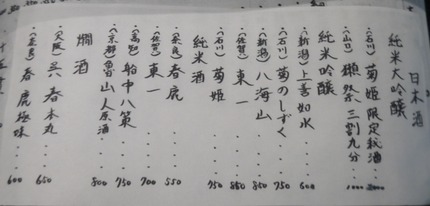 日本酒
純米大吟醸
(石川) 菊姫 限定秘酒 ‥ 2000
(山口) 獺祭 三割九分 ‥ 1000
純米吟醸
(新潟) 上善如水 ‥‥ 600
(石川) 菊のしずく ‥‥ 750
(新潟) 八海山 ‥‥ 850
(佐賀) 東一 ‥‥ 850
(石川) 菊姫 ‥‥ 750
純米酒
(奈良) 春鹿 ‥‥ 550
(佐賀) 東一 ‥‥ 700
(高知) 船中八策 ‥‥ 750
(京都) 魯山人原酒 ‥ 800
燗酒
(大阪) 呉春本丸 ‥‥ 650
(奈良) 春鹿極味 ‥‥ 600